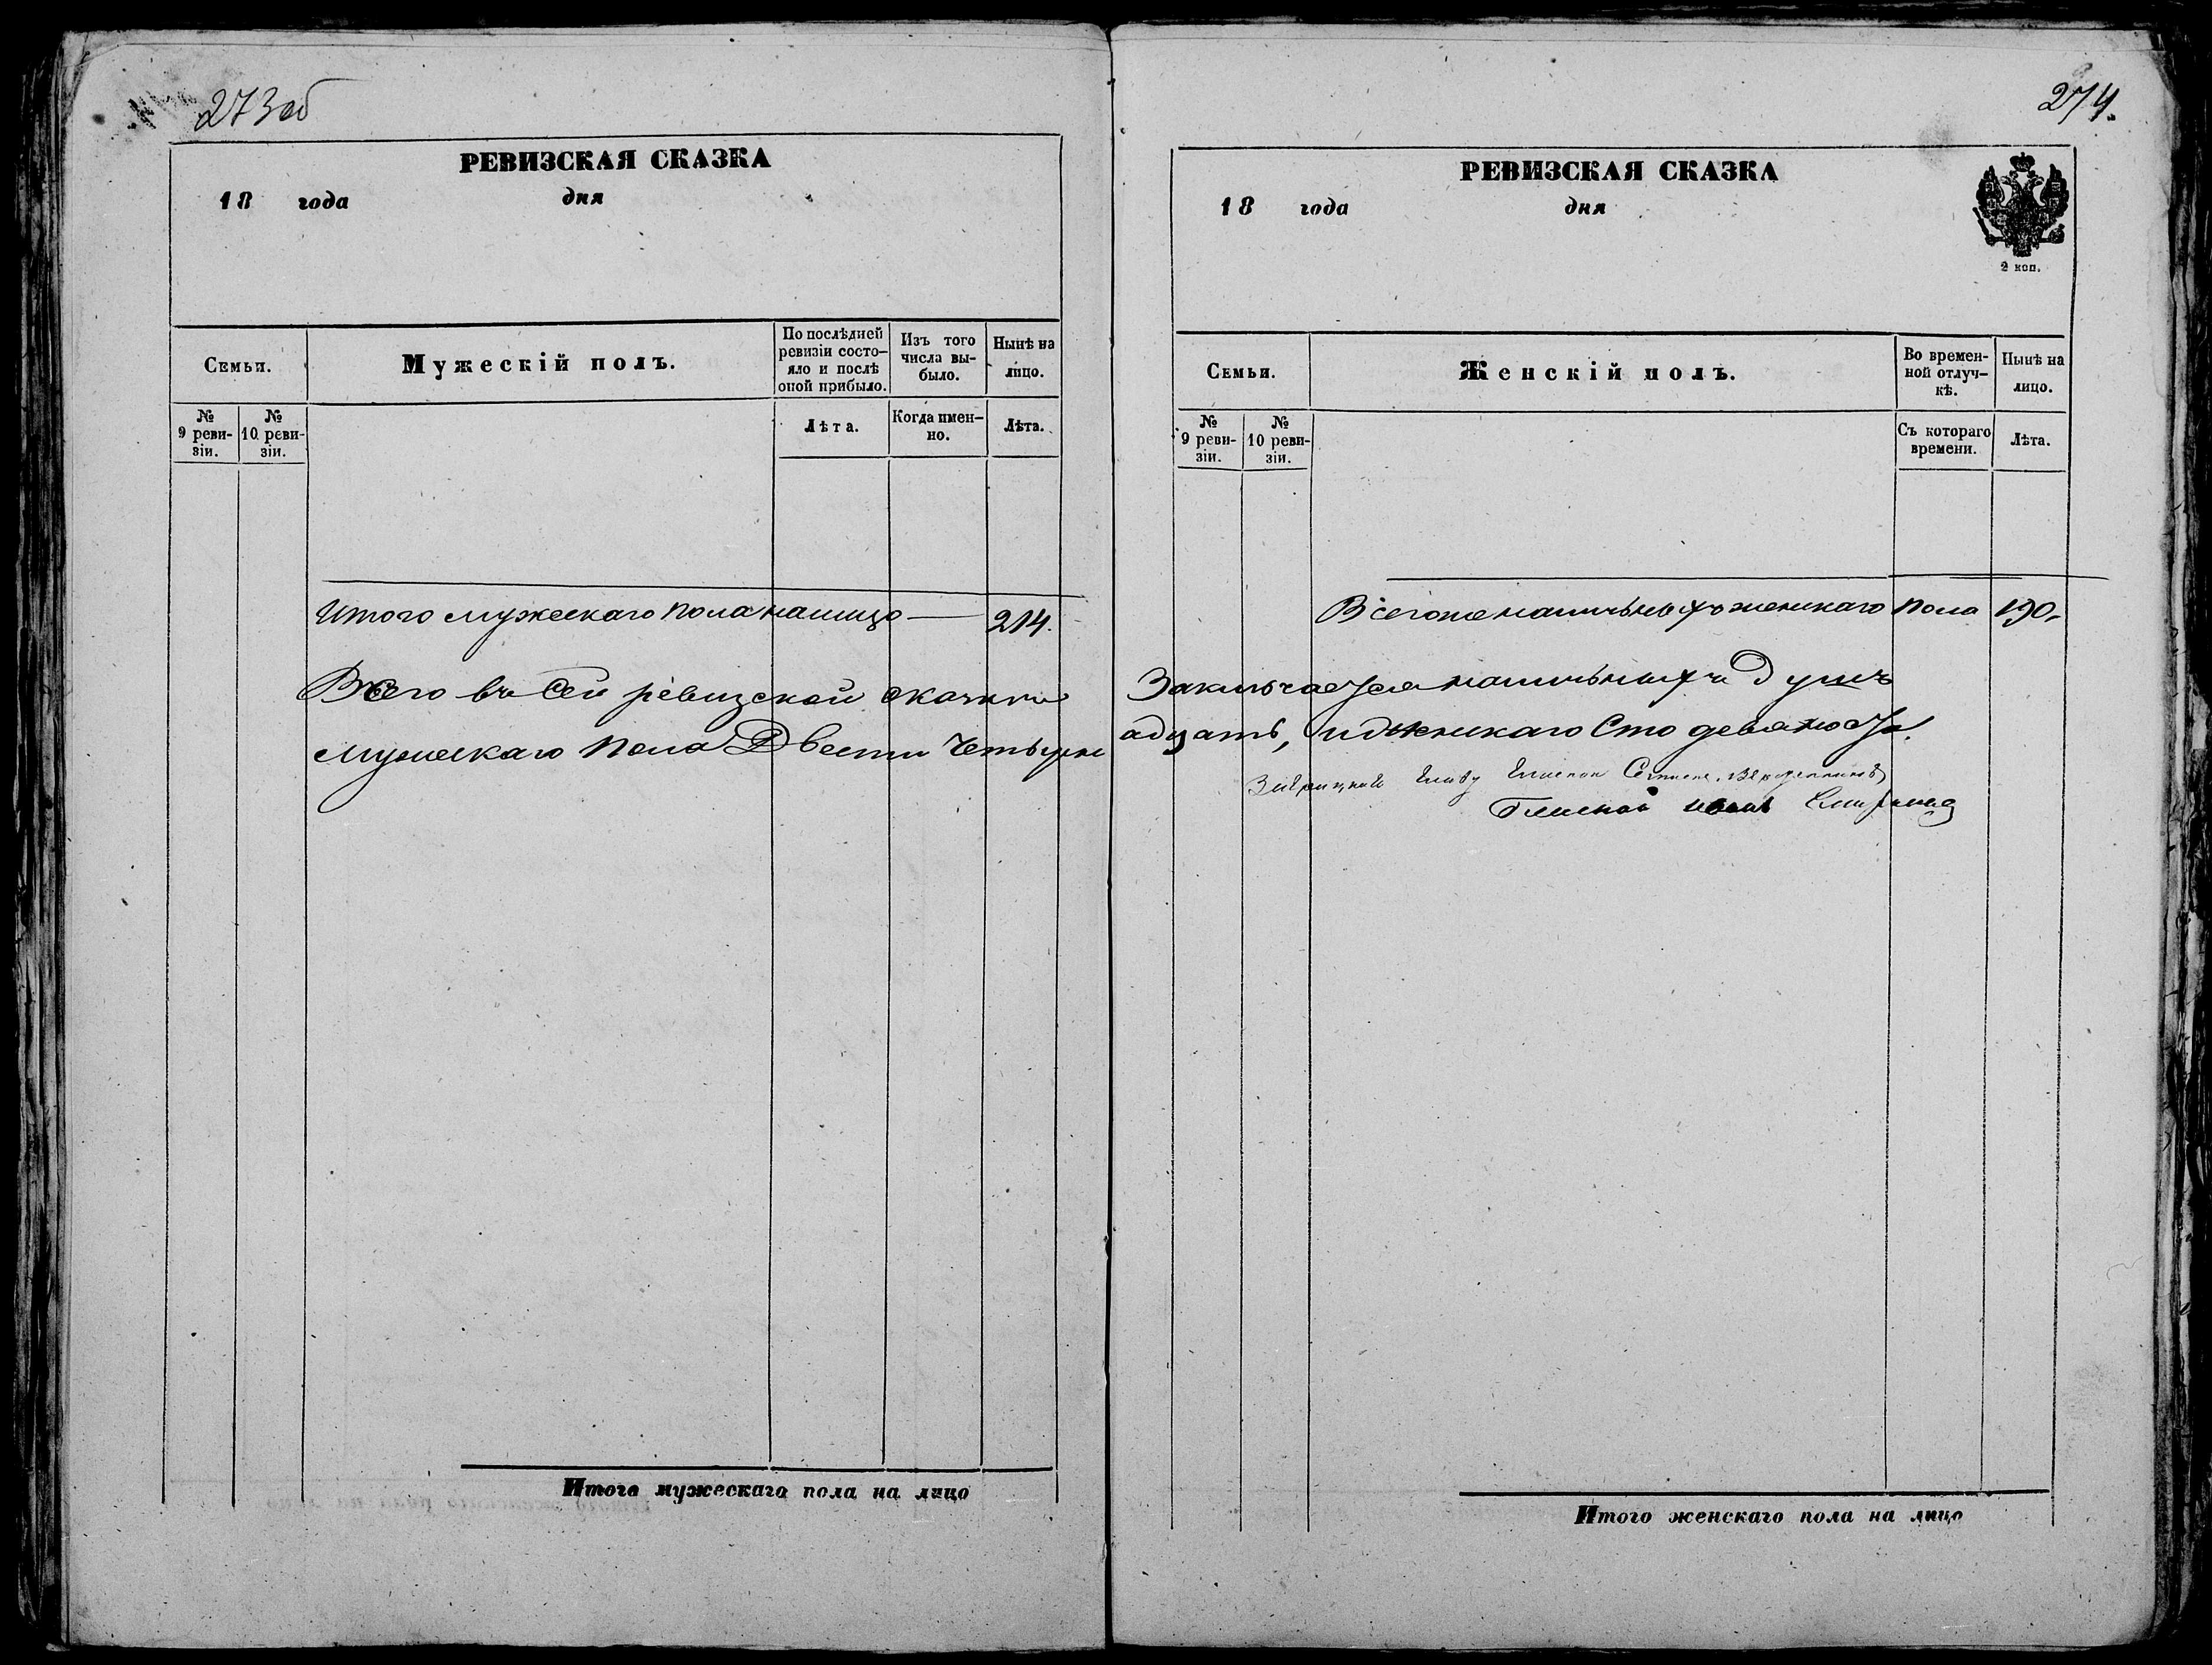 273 об
РЕВИЗСКАЯ СКАЗКА
18 года дня
Семьи.
Мужескій полъ.
По послѣдней ревизіи состо-
яло и послѣ оной прибыло.
Изъ того числа вы-
было.
Нынѣ на лицо.
№ 9 реви-
зіи.
№ 10 реви-
зіи.
Лѣта.
Когда имен-
но.
Лѣта.
Итого мужескаго пола налицо — 214.
Всего въ сей ревизской сказки
мужескаго пола Двести четырне
Итого мужескаго пола на лицо
274.
РЕВИЗСКАЯ СКАЗКА
18 года дня
2 коп.
Семьи.
Женскій полъ.
Во времен-
ной отлуч-
кѣ.
Нынѣ на лицо.
№ 9 реви-
зіи.
№ 10 реви-
зіи.
Съ котораго времени.
Лѣта.
Всего же наличныхъ женскаго пола 190.
Заключается наличныхъ душъ
адцать, женскаго Сто девяносто.
Итого женскаго пола на лицо